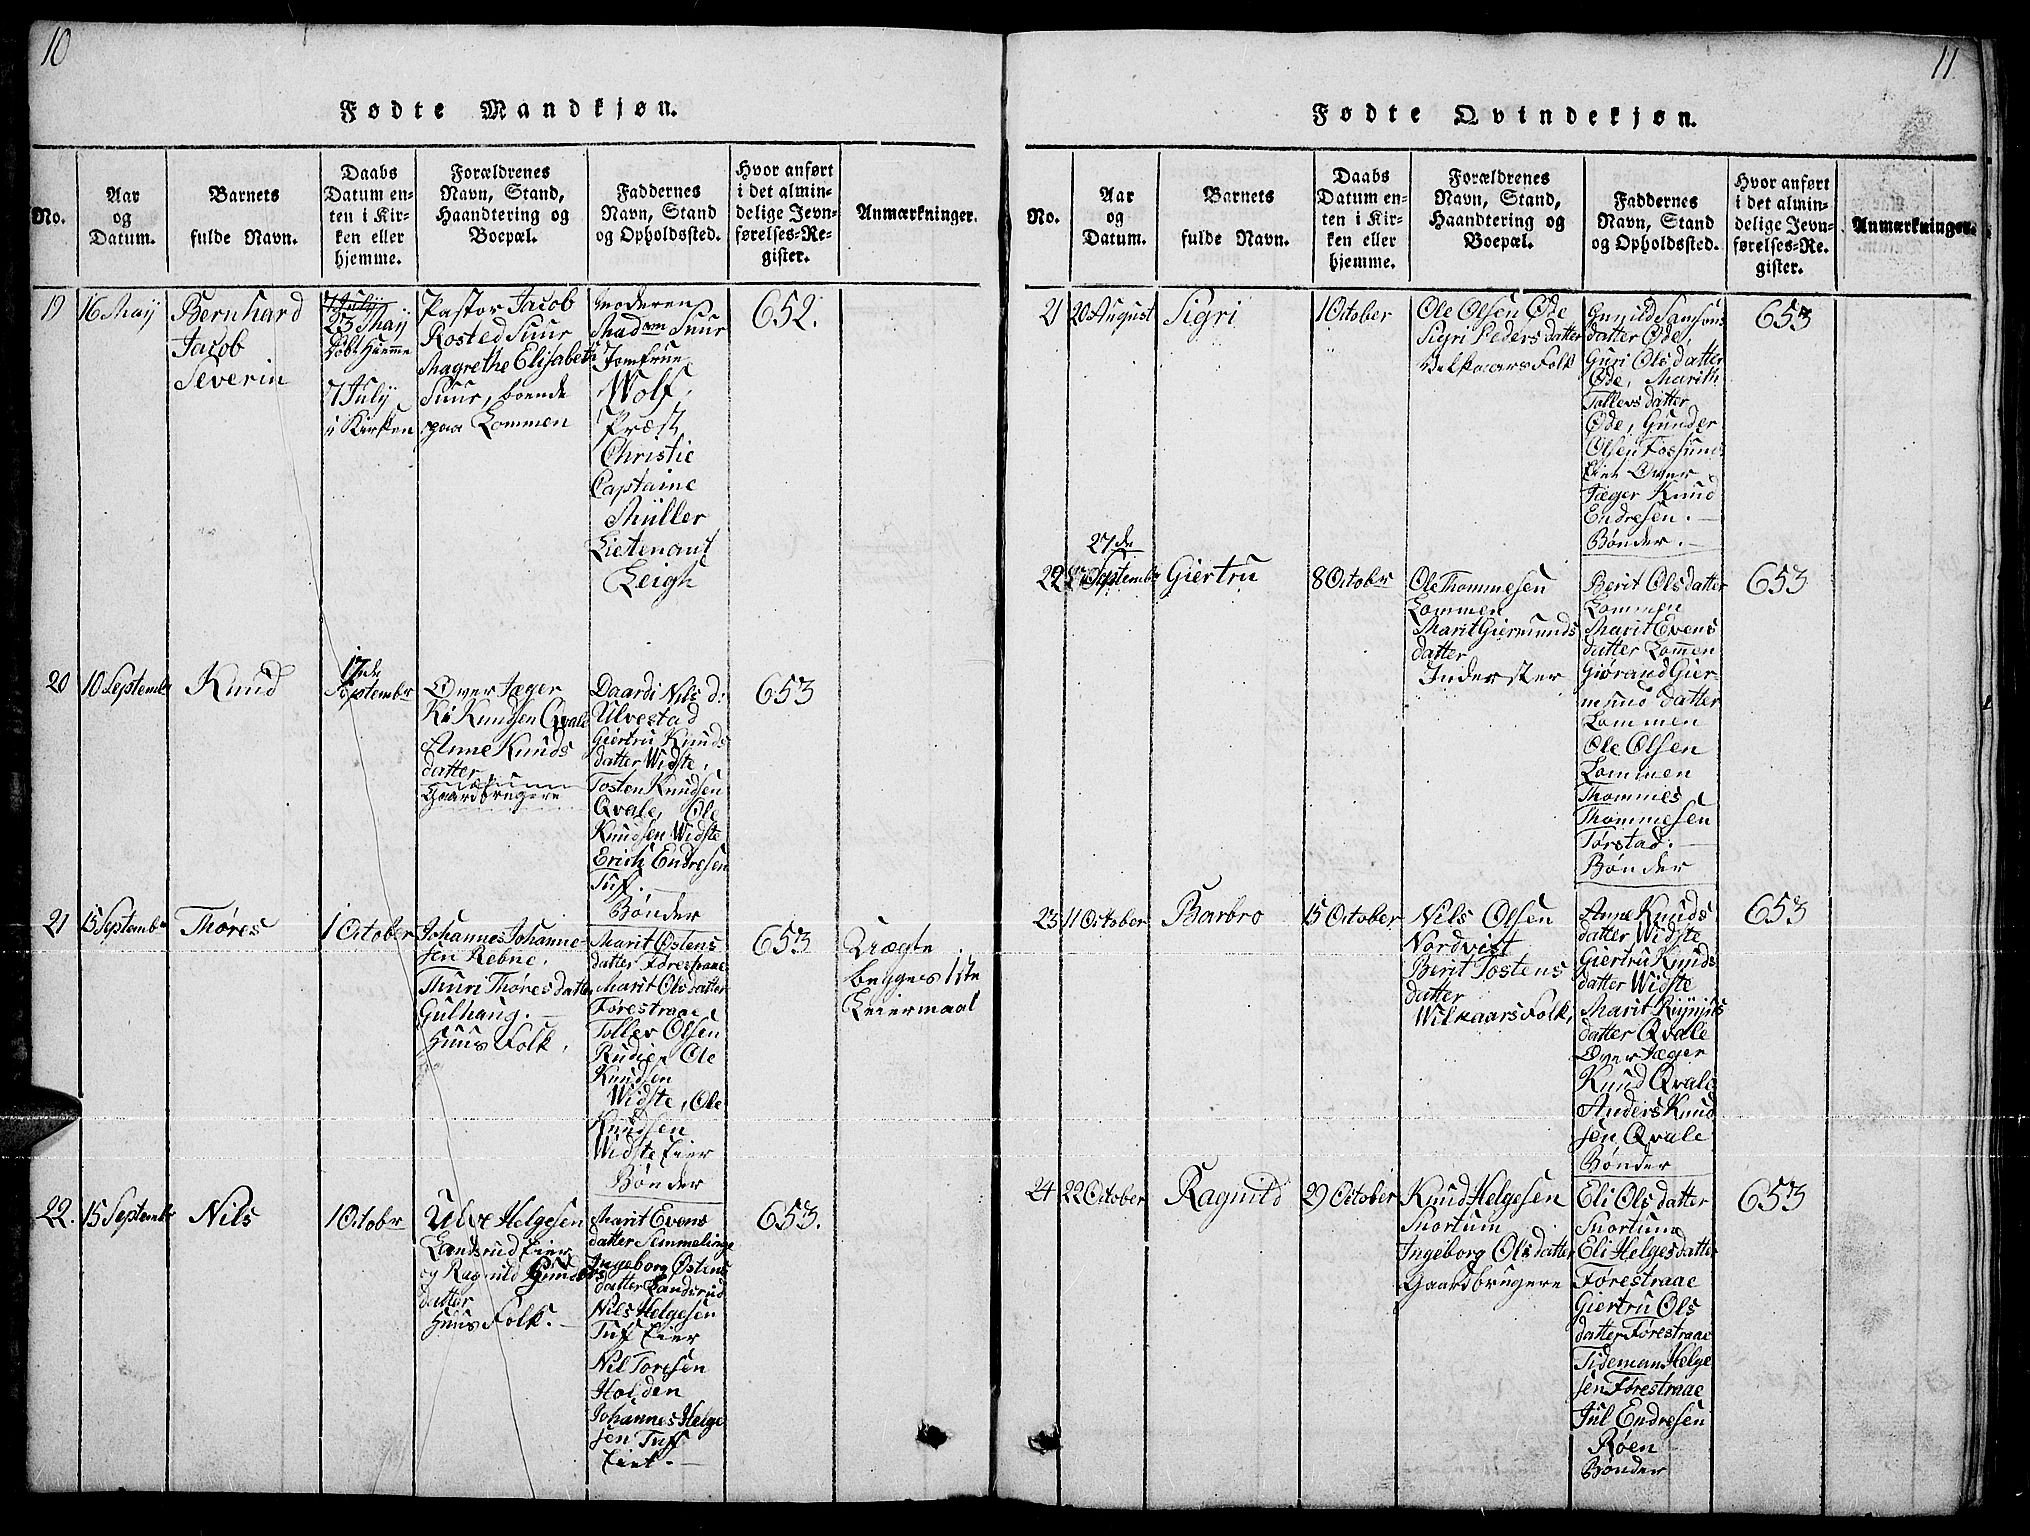 10
Fødte Mandkjøn.
No.
Aar
og
Datum.
Barnets
fulde Navn.
Daabs
Datum en-
ten i Kir-
ken eller
hjemme.
Forældrenes
Navn, Stand,
Haandtering og
Boepæl.
Faddernes
Navn, Stand
og Opholdssted.
Hvor anført
i det almin-
delige Jevn-
førelses-Re-
gister.
Anmærkninger.
19
16 Maij
Bernhard
Jacob
Severin
7 Julij
23 Maij
døbt Hiemme
7 July
i Kirken
Pastor Jacob
Rosted Suur
Magrethe Elisabeth
Suur, boende
paa Lommen
Moderen
Madam Suur
Jomfrue
Wolf,
Præst,
Christie
Captaine
Müller
Lietenant
Leigh
652.
20
10 Septembr
Knud
17de
Septembr
Over Jæger
Ki Knudsen Qvale
Anne Knuds
datter
Gaardbrugere
Daardi Nils d:
Ulvestad
Giertru Knuds
datter Widste,
Tosten Knudsen
Qvale, Ole
Knudsen Widste
Erich Endresen
Tuf.
Bønder
653
21
15 Septembr
Thøres
1 October
Johannes Johanne-
sen Rebne,
Thuri Thøres datter
Gulhaug.
Huus Folk,
Marit Østens
datter Førestraae
Marit Ols datter
Førestraae
Tollev Olsen
Rudi Ole
Knudsen
Widste, Ole
Knudsen
Widste Eier
Bønder
653
Uægte
begges 1ste
Leiermaal
22.
15 Septembr
Nils
1 Octobr
Ulve Helgesen
Landsrud Eier
og Ragnild Gunders
datter
Huus Folk.
Marit Evens
datter Semmelinge
Ingeborg Østens
datter Landsrud
Nils Helgesen
Tuf Eier
Nil Toresen
Holden
Johannes Helge
sen Tuff
Eiet.
653.
11
Fødte Qvindekjøn.
No.
Aar
og
Datum.
Barnets
fulde Navn.
Daabs
Datum en-
ten i Kir-
ken eller
hjemme.
Forældrenes
Navn, Stand,
Haandtering og
Boepæl.
Faddernes
Navn, Stand
og Opholdssted.
Hvor anført
i det almin-
delige Jevn-
førelses-Re-
gister.
Anmærkninger.
21
20 August
Sigri
1 October
Ole Olsen Øde
Sigri Peders datter
Velkaars Folk
Gunild Samsons
datter Øde,
Guri Ols datter
Øde, Marith
Tollevs datter
Øde, Gunder
Olsen Fossund
Eier Over
Jæger Knud
Endresen.
Bønder.
653
22
27de
Septembr
Giertru
8 Octobr
Ole Thommesen
Lommen
Marit Giermunds
datter
Inderster
Berit Ols datter
Lommen
Marit Evens
datter Lommen
Giørand Gier-
mund datter
Lommen
Ole Olsen
Lommen
Thommes
Thommesen
Tørstad.
Bønder
653
23
11 October
Barbro
15 October
Nils Olsen
Nordvist
Berit Tostens
datter
Wilkaars Folk,
Anne Knuds
datter Widste
Giertru Knuds
datter Widste
Marit
datter Qvale
Over Jæger
Knud Qvale
Anders Knud
sen Qvale
Bønder
653
24
22 October
Ragnild
29 October
Knud Helgesen
Snortum
Ingeborg Ols datter
Gaardbrugere
Eli Ols datter
Snortum
Eli Helges datter
Førestraae
Giertru Ols
datter Førestraae
Tideman Helge
sen Førestraae
Jul Endresen
Røen
Bønder
653